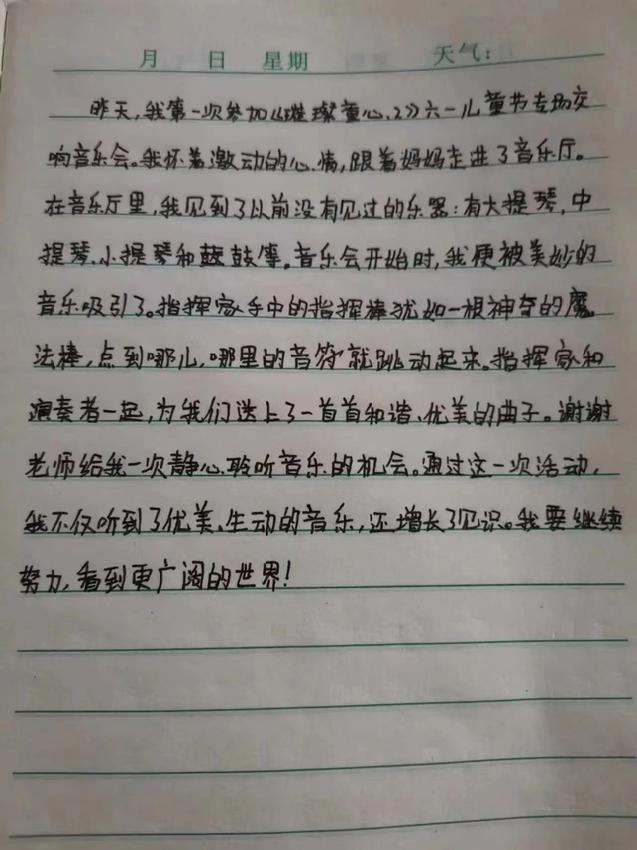 月 日 星期 天气:
昨天,我第一次参加《璀璨童心.2》六一儿童节专场交
响音乐会。我怀着激动的心情,跟着妈妈走进了音乐厅。
在音乐厅里,我见到了以前没有见过的乐器:有大提琴,中
提琴、小提琴和鼓等。音乐会开始时,我便被美妙的
音乐吸引了。指挥家手中的指挥棒犹如一根神奇的魔
法棒,点到哪儿,哪里的音符就跳动起来。指挥家和
演奏者一起,为我们送上了一首首和谐、优美的曲子。谢谢
老师给我一次静心聆听音乐的机会。通过这一次活动,
我不仅听到了优美、生动的音乐,还增长了见识。我要继续
努力,看到更广阔的世界!